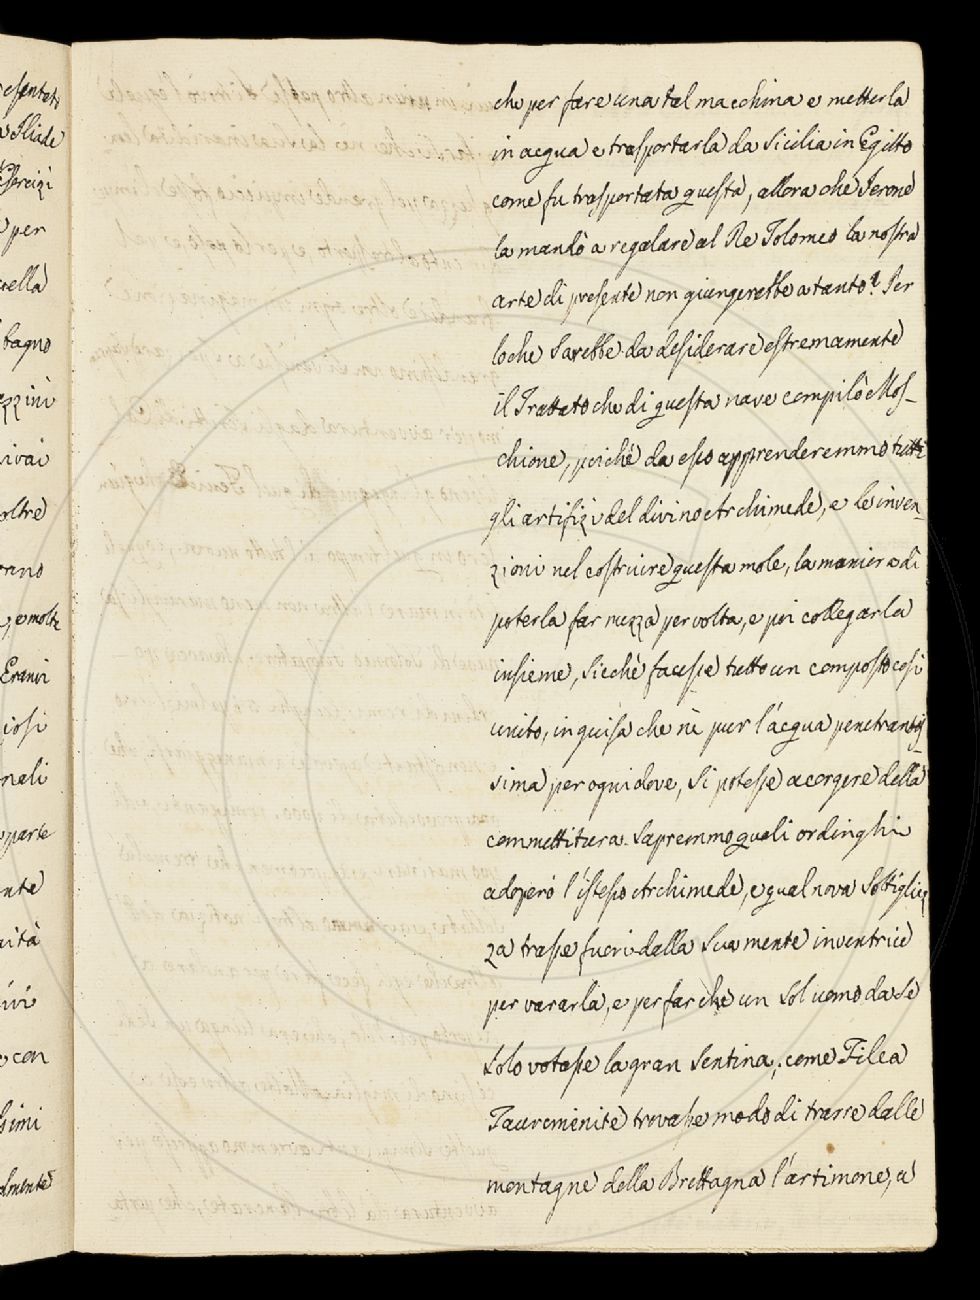 che per fare una tal macchina e metterla
in acqua e trasportarla da Sicilia in Egitto
come fu trasportata questa, allora che Jerone
la mandò a regalare al Re Tolomeo la nostra
arte di presente non giungerebbe a tanto? Per
loche sarebbe da desiderare estremamente
il Trattato che di questa nave compilò Mos-
chione, poiché da esso apprenderemmo tutti
gli artifizi del divino Archimede, e le inven-
zioni nel costruire questa mole, la maniera di
poterla far mezza per volta, e poi collegarla
insieme, sicché facesse tutto un composto così
unito, in guisa che nè pur l'acqua penetrantis
sima per ogni dove, si potesse accorgere della
commettitura. Sapremmo quali ordinghi
adoperò l'istesso Archimede, e qual nova sottigliez
za trasse fuori dalla sua mente inventrice
per vararla, e per far che un sol uomo da se
solo votasse la gran sentina; come Filea
Taurominite trovasse modo di trarre dalle
montagne della Brettagna l'artimone, a
esentato
Iliade
per
uella
bagno
ivai
oltre
e molte
Erani
iosi
nali
parte
nte
con
simi
almente